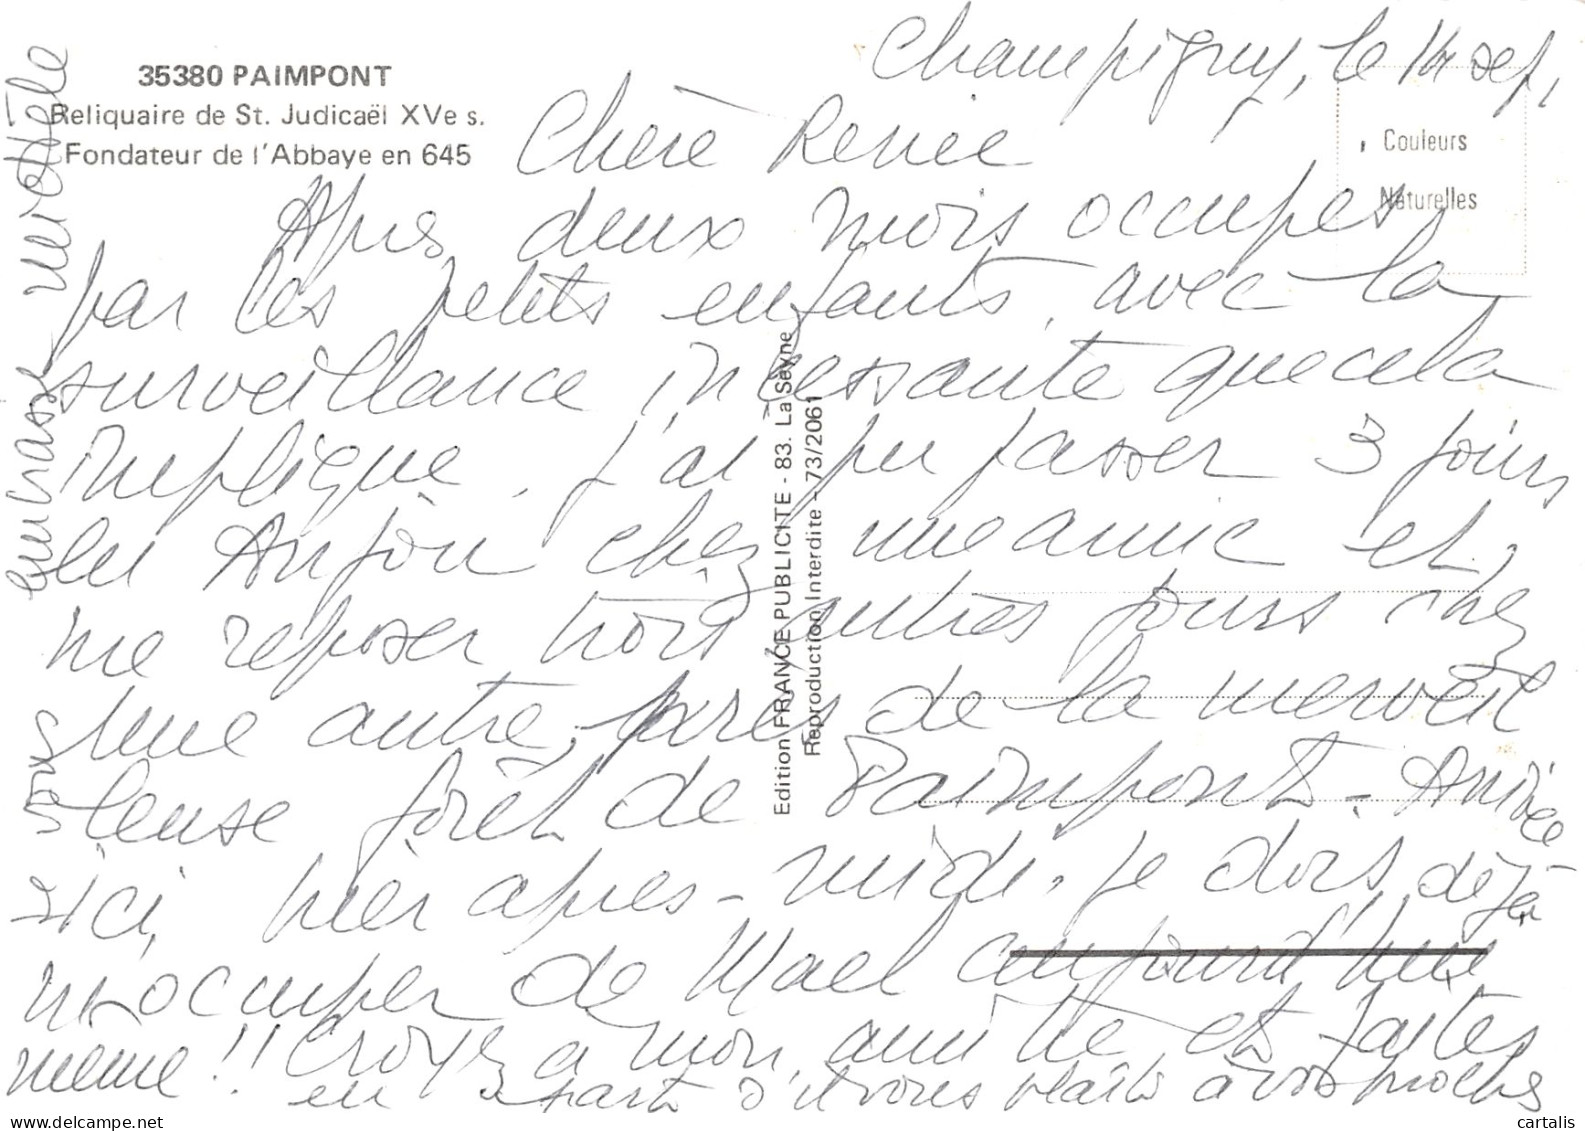 35380 PAIMPONT
Reliquaire de St. Judicaël XVe s.
Fondateur de l'Abbaye en 645
Couleurs
Naturelles
Edition FRANCE PUBLICITE - 83. La Seyne
Reproduction Interdite - 73/2061
Champigny, le 14 sep,
Chère Renée
Après deux mois occupés
par les petits enfants, avec la
surveillance incessante que cela
implique, j'ai pu passer 3 jours
en Anjou chez une amie et,
me reposer trois autres jours chez
une autre, près de la merveil
leuse forêt de Paimpont - Arrivée
ici, hier après-midi. je dois déjà
m'occuper de Mael aujourd'hui
même !! Croyez à mon amitié et faites
en part s'il vous plaît à vos proches
vous embrasse
cartalis